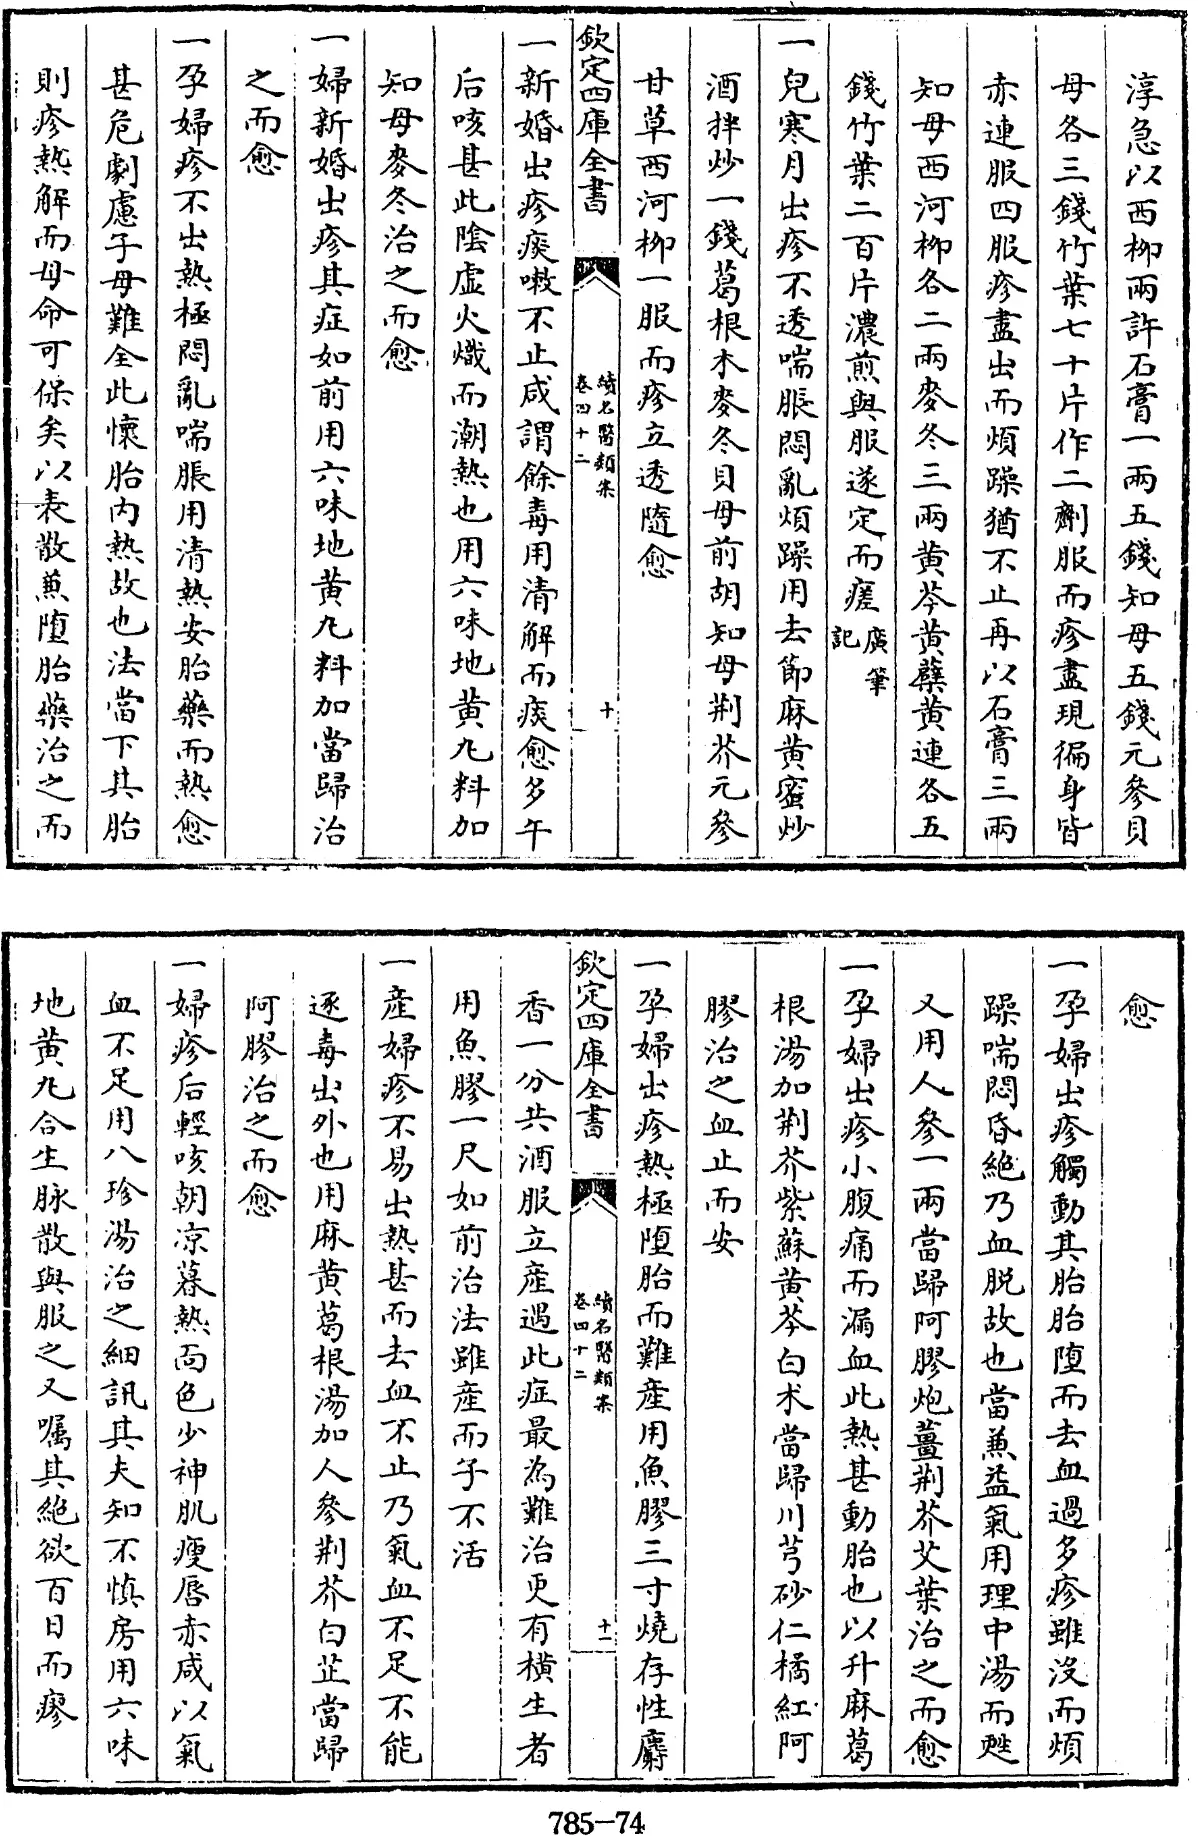 淳急以西柳兩許石膏一兩五錢知母五錢元參貝
母各三錢竹葉七十片作二劑服而疹盡現徧身皆
赤連服四服疹盡出而煩躁猶不止再以石膏三兩
知母西河柳各二兩麥冬三兩黄芩黄蘗黄連各五
錢竹葉二百片濃煎與服遂定而瘥廣筆記
一兒寒月出疹不透喘脹悶亂煩躁用去節麻黄蜜炒
酒拌炒一錢葛根木麥冬貝母前胡知母荆芥元參
甘草西河柳一服而疹立透隨愈
欽定四庫全書
續名醫類案
卷四十二
十
一新婚出疹痰嗽不止咸謂餘毒用清解而痰愈多午
后咳甚此陰虚火熾而潮熱也用六味地黄九料加
知母麥冬治之而愈
一婦新婚出疹其症如前用六味地黄九料加當歸治
之而愈
一孕婦疹不出熱極悶亂喘脹用清熱安胎藥而熱愈
甚危劇慮子母難全此懷胎内熱故也法當下其胎
則疹熱解而母命可保矣以表散兼墮胎藥治之而
愈
一孕婦出疹觸動其胎胎墮而去血過多疹雖没而煩
躁喘悶昏絶乃血脱故也當兼益氣用理中湯而甦
又用人參一兩當歸阿膠炮薑荆芥艾葉治之而愈
一孕婦出疹小腹痛而漏血此熱甚動胎也以升麻葛
根湯加荆芥紫蘇黄芩白术當歸川芎砂仁橘紅阿
膠治之血止而安
一孕婦出疹熱極墮胎而難産用魚膠三寸燒存性麝
欽定四庫全書
續名醫類案
卷四十二
十一
香一分共酒服立産遇此症最為難治更有横生者
用魚膠一尺如前治法雖産而子不活
一産婦疹不易出熱甚而去血不止乃氣血不足不能
逐毒出外也用麻黄葛根湯加人參荆芥白芷當歸
阿膠治之而愈
一婦疹后輕咳朝凉暮熱面色少神肌瘦唇赤咸以氣
血不足用八珍湯治之細訊其夫知不慎房用六味
地黄九合生脉散與服之又囑其絶欲百日而瘳
785-74